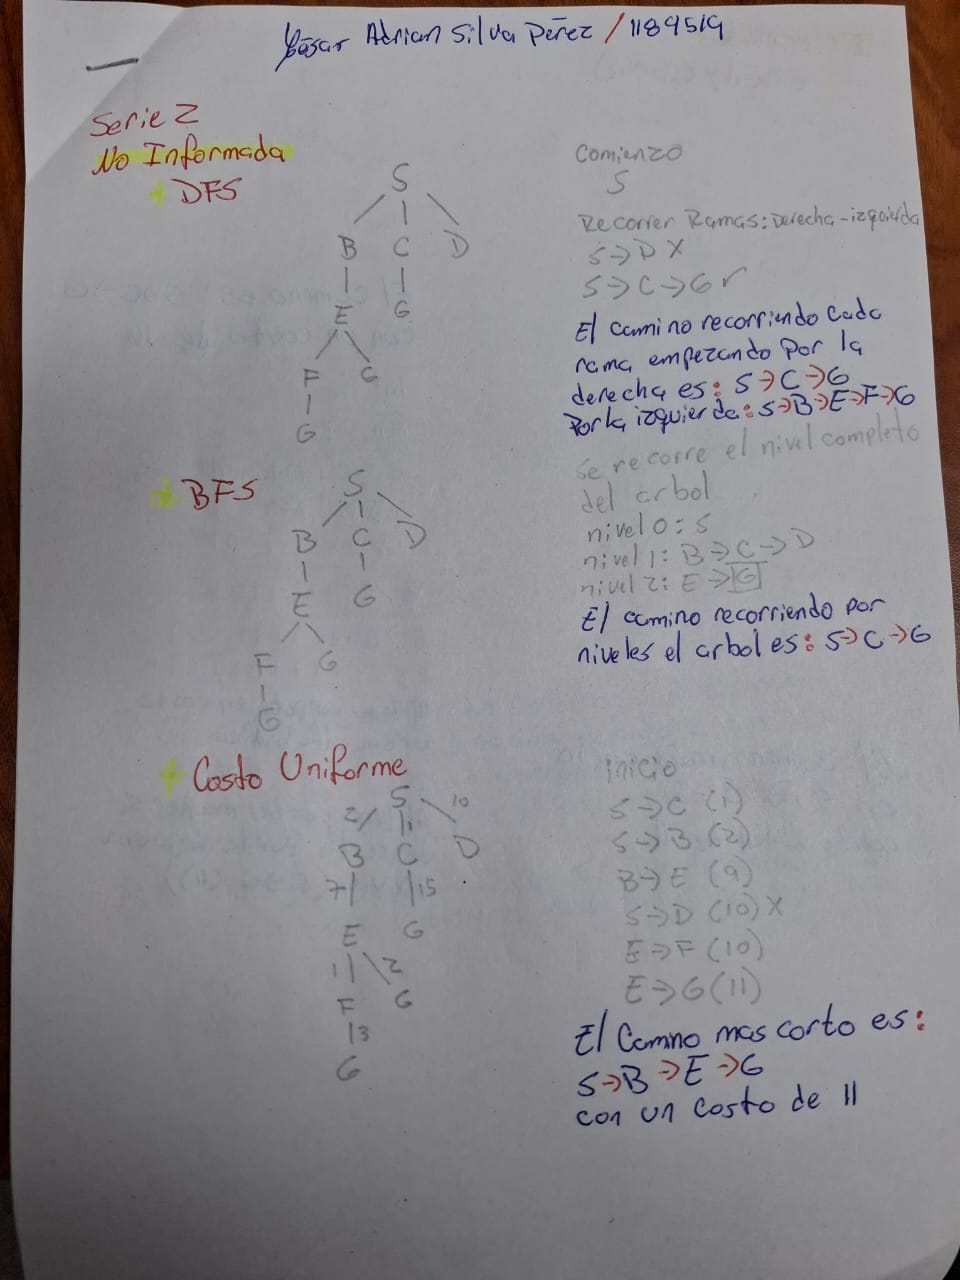 César Adrian Silva Pérez / 1189519
Serie 2
No Informada
DFS
S
B C D
E G
F G
G
Comienzo
S
Recorrer Ramas: Derecha-izquierda
S→D X
S→C→G ✓
El camino recorriendo cada
rama empezando por la
derecha es: S→C→G
Por la izquierda: S→B→E→F→G
BFS
S
B C D
E G
F G
G
Se recorre el nivel completo
del arbol
nivel 0: S
nivel 1: B→C→D
nivel 2: E→G
El camino recorriendo por
niveles el arbol es: S→C→G
Costo Uniforme
S
2 1 10
B C D
7 15
E G
1 2
F G
3
G
inicio
S→C (1)
S→B (2)
B→E (9)
S→D (10) X
E→F (10)
E→G (11)
El Camno mas corto es:
S→B→E→G
con un costo de 11